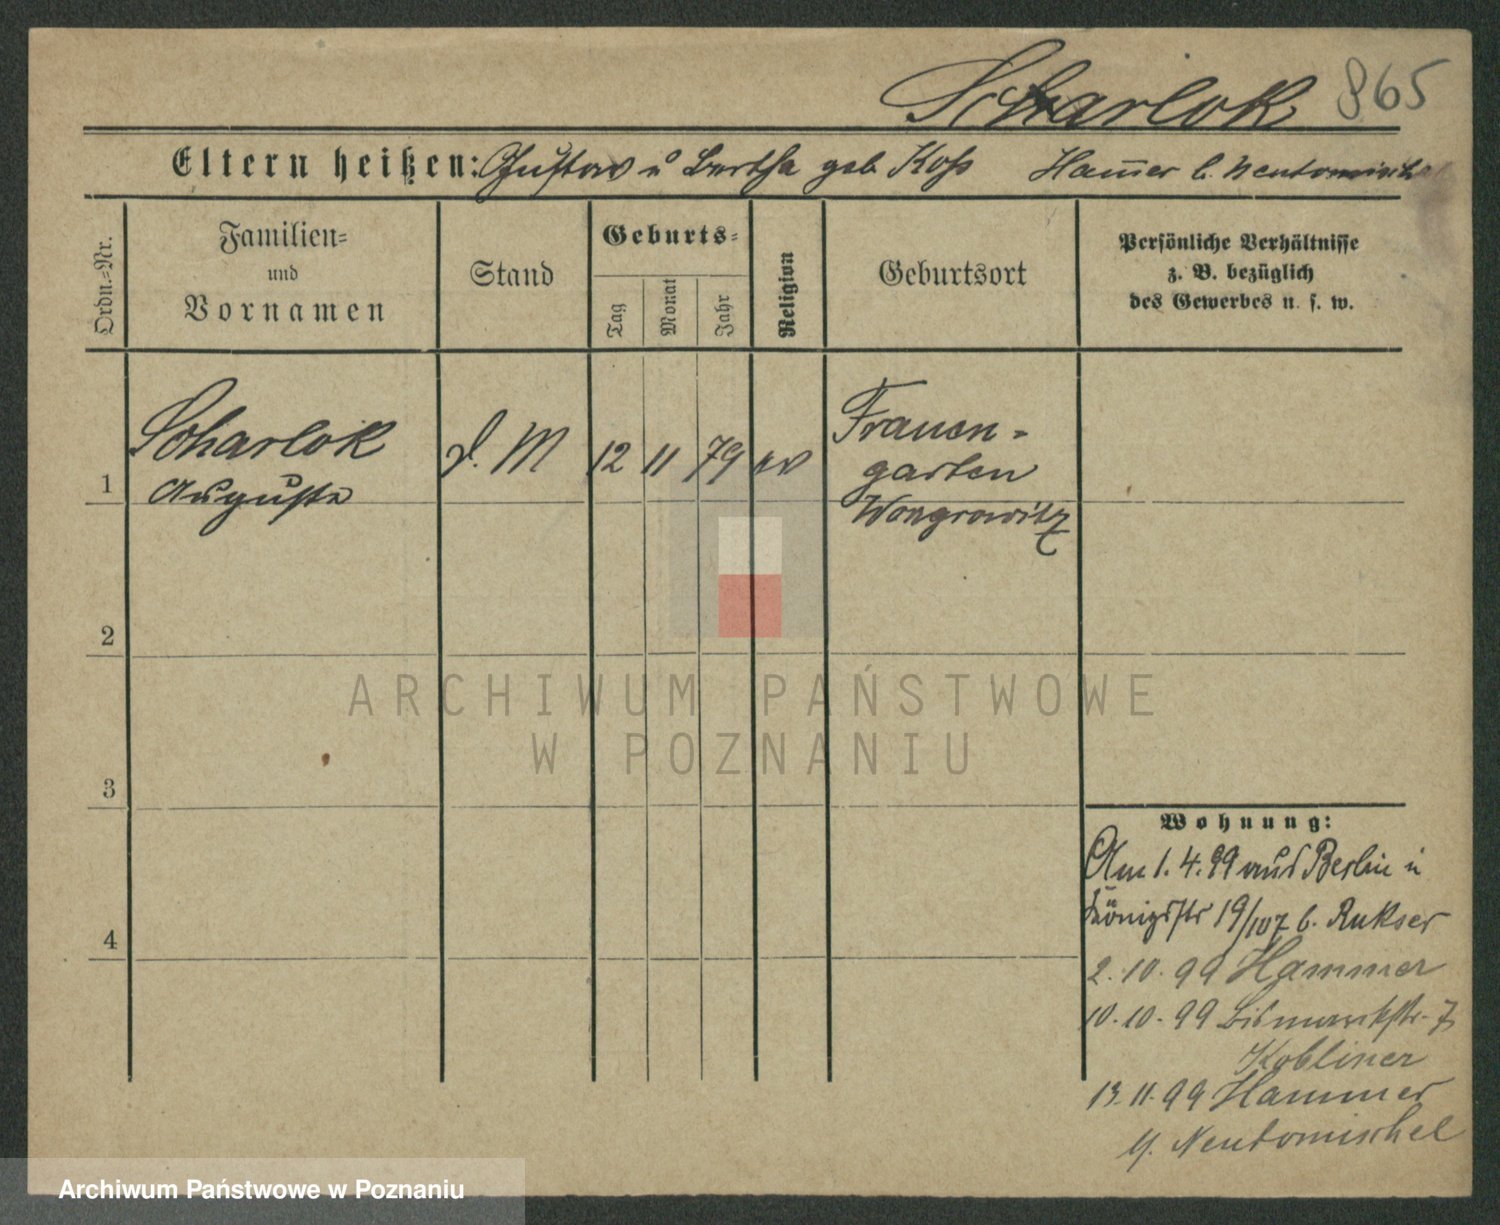 Scharlok 865
Eltern heißen: Gustav u Bertha geb. Koß Hammer b. Neutomischel
Ordn.=Nr.
Familien=
und
Vornamen
Stand
Geburts=
Tag
Monat
Jahr
Religion
Geburtsort
Persönliche Verhältnisse
z. B. bezüglich
des Gewerbes u. s. w.
1
Scharlok
Auguste
d. M
12
11
79
ev
Frauen-
garten
Wongrowitz
2
3
4
ARCHIWUM PAŃSTWOWE
W POZNANIU
Wohnung:
Am 1.4.99 aus Berlin n
Königstr 19/107 b. Rukser
2.10.99 Hammer
10.10.99 Bismarckstr. 7
Kobliner
13.11.99 Hammer
Neutomischel
Archiwum Państwowe w Poznaniu